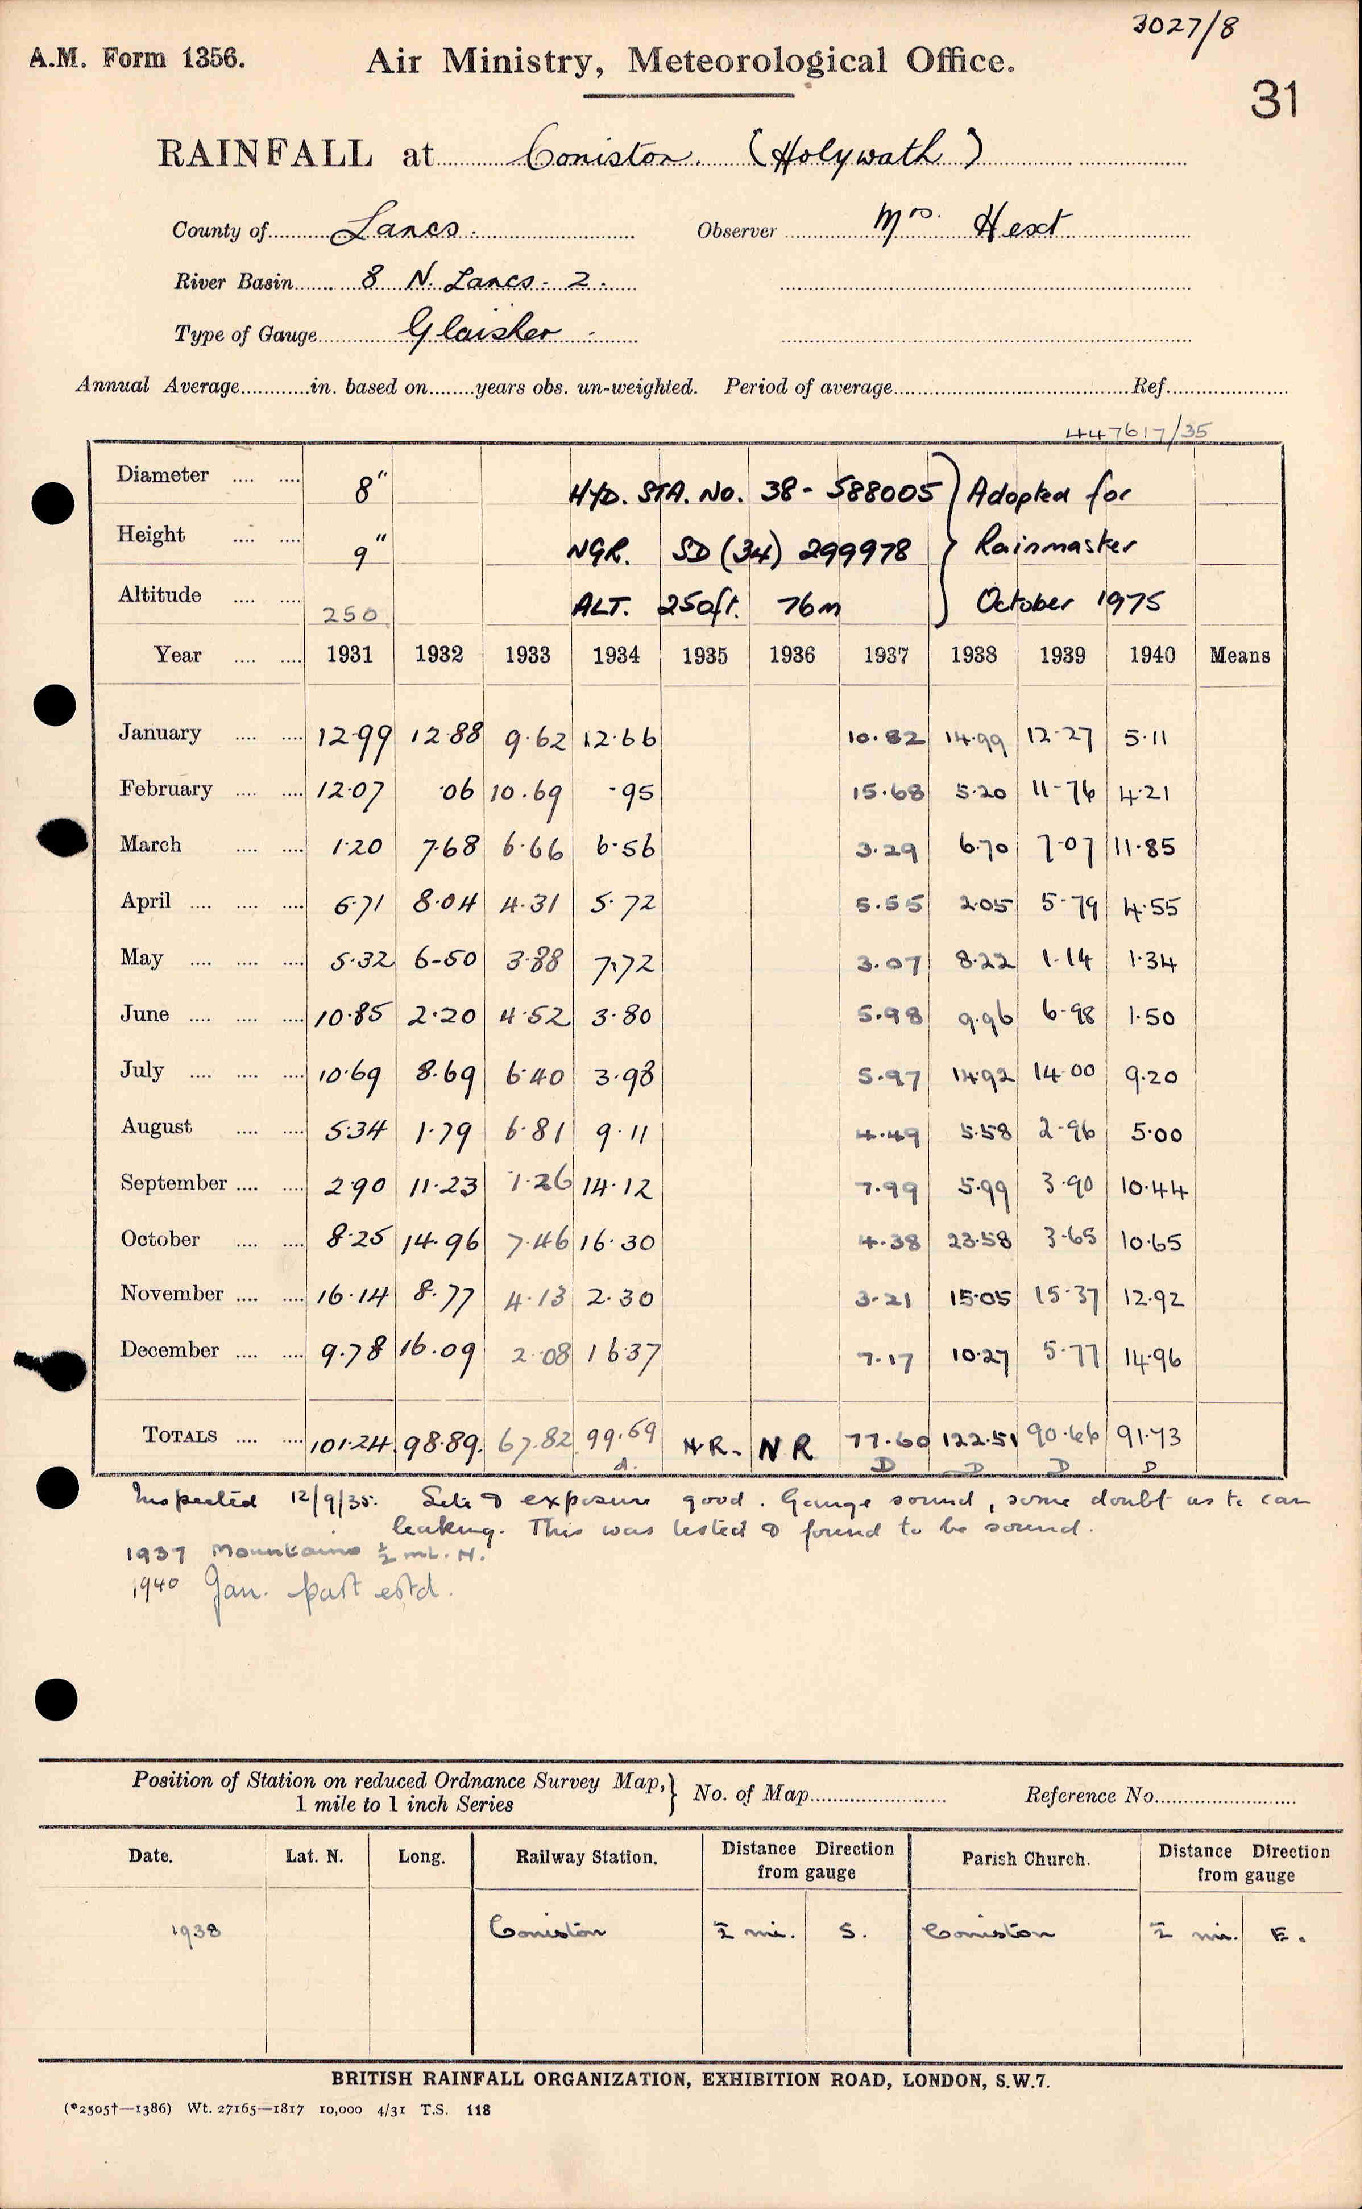 3027/8
A.M. Form 1356. Air Ministry, Meteorological Office.
31
RAINFALL at Coniston (Holywath)
County of Lancs. Observer Mrs. Hext
River Basin 8 N. Lancs. 2.
Type of Gauge Glaisher
Annual Average in. based on years obs. un-weighted. Period of average Ref.
447617/35
Diameter 8" HYD. STA. No. 38-588005 } Adopted for
Height 9" NGR. SD (34) 299978 } Rainmaster
Altitude 250 ALT. 250ft. 76m } October 1975
Year 1931 1932 1933 1934 1935 1936 1937 1938 1939 1940 Means
January 12.99 12.88 9.62 12.66 10.82 14.99 12.27 5.11
February 12.07 .06 10.69 .95 15.68 5.20 11.76 4.21
March 1.20 7.68 6.66 6.56 3.29 6.70 7.07 11.85
April 6.71 8.04 4.31 5.72 5.55 2.05 5.79 4.55
May 5.32 6.50 3.88 7.72 3.07 8.22 1.14 1.34
June 10.85 2.20 4.52 3.80 5.98 9.96 6.98 1.50
July 10.69 8.69 6.40 3.98 5.97 14.92 14.00 9.20
August 5.34 1.79 6.81 9.11 4.49 5.58 2.96 5.00
September 2.90 11.23 1.26 14.12 7.99 5.99 3.90 10.44
October 8.25 14.96 7.46 16.30 4.38 23.58 3.65 10.65
November 16.14 8.77 4.13 2.30 3.21 15.05 15.37 12.92
December 9.78 16.09 2.08 16.37 7.17 10.27 5.77 14.96
TOTALS 101.24 98.89 67.82 99.59 N.R. N R 77.60 122.51 90.66 91.73
D D D D
Inspected 12/9/35. Site & exposure good. Gauge sound, some doubt as to can
leaking. This was tested & found to be sound.
1937 Mountains ½ ml. N.
1940 Jan. part estd.
Position of Station on reduced Ordnance Survey Map, } No. of Map Reference No.
1 mile to 1 inch Series
Date. Lat. N. Long. Railway Station. Distance Direction from gauge Parish Church. Distance Direction from gauge
1938 Coniston ½ mi. S. Coniston ½ mi. E.
BRITISH RAINFALL ORGANIZATION, EXHIBITION ROAD, LONDON, S.W.7.
(*2505†—1386) Wt. 27165—1817 10,000 4/31 T.S. 118